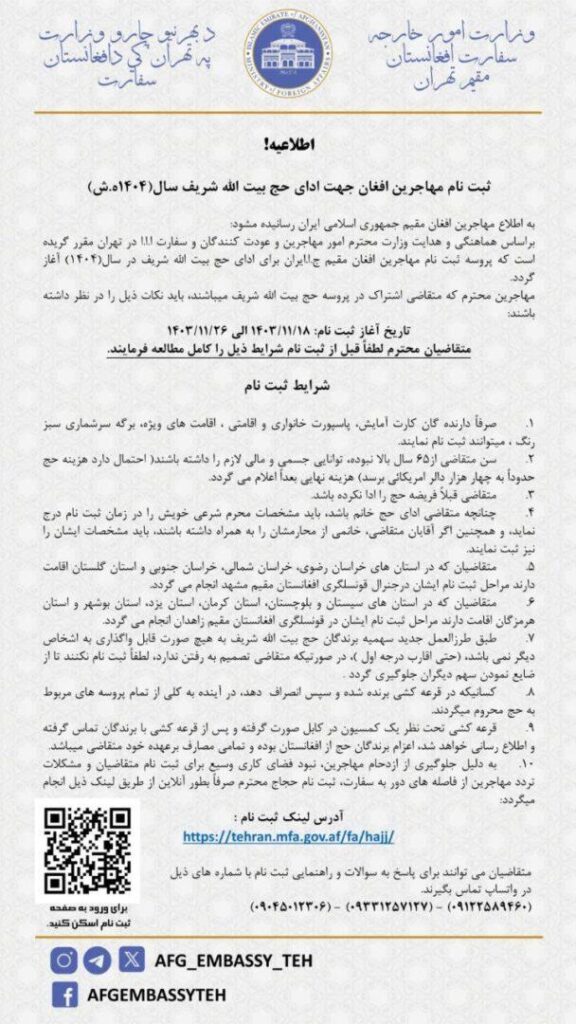 وزارت امور خارجه
سفارت افغانستان
مقیم تهران
د بهرنیو چارو وزارت
په تهران کي د افغانستان
سفارت
ISLAMIC EMIRATE OF AFGHANISTAN
MINISTRY OF FOREIGN AFFAIRS
اطلاعیه!
ثبت نام مهاجرین افغان جهت ادای حج بیت الله شریف سال(۱۴۰۴ه.ش)
به اطلاع مهاجرین افغان مقیم جمهوری اسلامی ایران رسانیده مشود:
براساس هماهنگی و هدایت وزارت محترم امور مهاجرین و عودت کنندگان و سفارت ا.ا.ا در تهران مقرر گریده
است که پروسه ثبت نام مهاجرین افغان مقیم ج.ا.ایران برای ادای حج بیت الله شریف در سال(۱۴۰۴) آغاز
گردد.
مهاجرین محترم که متقاضی اشتراک در پروسه حج بیت الله شریف میباشند، باید نکات ذیل را در نظر داشته
باشند:
تاریخ آغاز ثبت نام: ۱۴۰۳/۱۱/۱۸ الی ۱۴۰۳/۱۱/۲۶
متقاضیان محترم لطفاً قبل از ثبت نام شرایط ذیل را کامل مطالعه فرمایند.
شرایط ثبت نام
۱. صرفاً دارنده گان کارت آمایش، پاسپورت خانواری و اقامتی ، اقامت های ویژه، برگه سرشماری سبز
رنگ ، میتوانند ثبت نام نمایند.
۲. سن متقاضی از۶۵ سال بالا نبوده، توانایی جسمی و مالی لازم را داشته باشند( احتمال دارد هزینه حج
حدوداً به چهار هزار دالر امریکائی برسد) هزینه نهایی بعداً اعلام می گردد.
۳. متقاضی قبلاً فریضه حج را ادا نکرده باشد.
۴. چنانچه متقاضی ادای حج خانم باشد، باید مشخصات محرم شرعی خویش را در زمان ثبت نام درج
نماید، و همچنین اگر آقایان متقاضی، خانمی از محارمشان را به همراه داشته باشند، باید مشخصات ایشان را
نیز ثبت نمایند.
۵. متقاضیان که در استان های خراسان رضوی، خراسان شمالی، خراسان جنوبی و استان گلستان اقامت
دارند مراحل ثبت نام ایشان درجنرال قونسلگری افغانستان مقیم مشهد انجام می گردد.
۶. متقاضیان که در استان های سیستان و بلوچستان، استان کرمان، استان یزد، استان بوشهر و استان
هرمزگان اقامت دارند مراحل ثبت نام ایشان در قونسلگری افغانستان مقیم زاهدان انجام می گردد.
۷. طبق طرزالعمل جدید سهمیه برندگان حج بیت الله شریف به هیچ صورت قابل واگذاری به اشخاص
دیگر نمی باشد، (حتی اقارب درجه اول )، در صورتیکه متقاضی تصمیم به رفتن ندارد، لطفاً ثبت نام نکنند تا از
ضایع نمودن سهم دیگران جلوگیری گردد .
۸. کسانیکه در قرعه کشی برنده شده و سپس انصراف دهد، در آینده به کلی از تمام پروسه های مربوط
به حج محروم میگردند.
۹. قرعه کشی تحت نظر یک کمسیون در کابل صورت گرفته و پس از قرعه کشی با برندگان تماس گرفته
و اطلاع رسانی خواهد شد، اعزام برندگان حج از افغانستان بوده و تمامی مصارف برعهده خود متقاضی میباشد.
۱۰. به دلیل جلوگیری از ازدحام مهاجرین، نبود فضای کاری وسیع برای ثبت نام متقاضیان و مشکلات
تردد مهاجرین از فاصله های دور به سفارت، ثبت نام حجاج محترم صرفاً بطور آنلاین از طریق لینک ذیل انجام
میگردد:
آدرس لینک ثبت نام :
https://tehran.mfa.gov.af/fa/hajj/
متقاضیان می توانند برای پاسخ به سوالات و راهنمایی ثبت نام با شماره های ذیل
در واتساپ تماس بگیرند.
(۰۹۱۲۲۵۸۹۴۶۰) – (۰۹۳۳۱۲۵۷۱۲۷) – (۰۹۰۴۵۰۱۲۳۰۶)
برای ورود به صفحه
ثبت نام اسکن کنید.
AFG_EMBASSY_TEH
AFGEMBASSYTEH